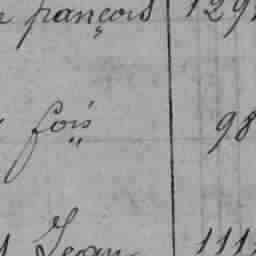 françois 129
fois 98
Jean 111